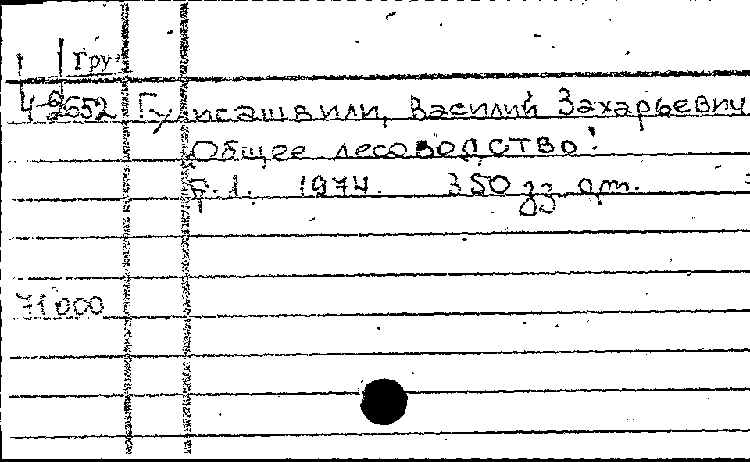 Гру
4-2652 Гулисашвили, Василий Захарьевич
Общее лесоводство.
Т.1. 1974. 350
71000